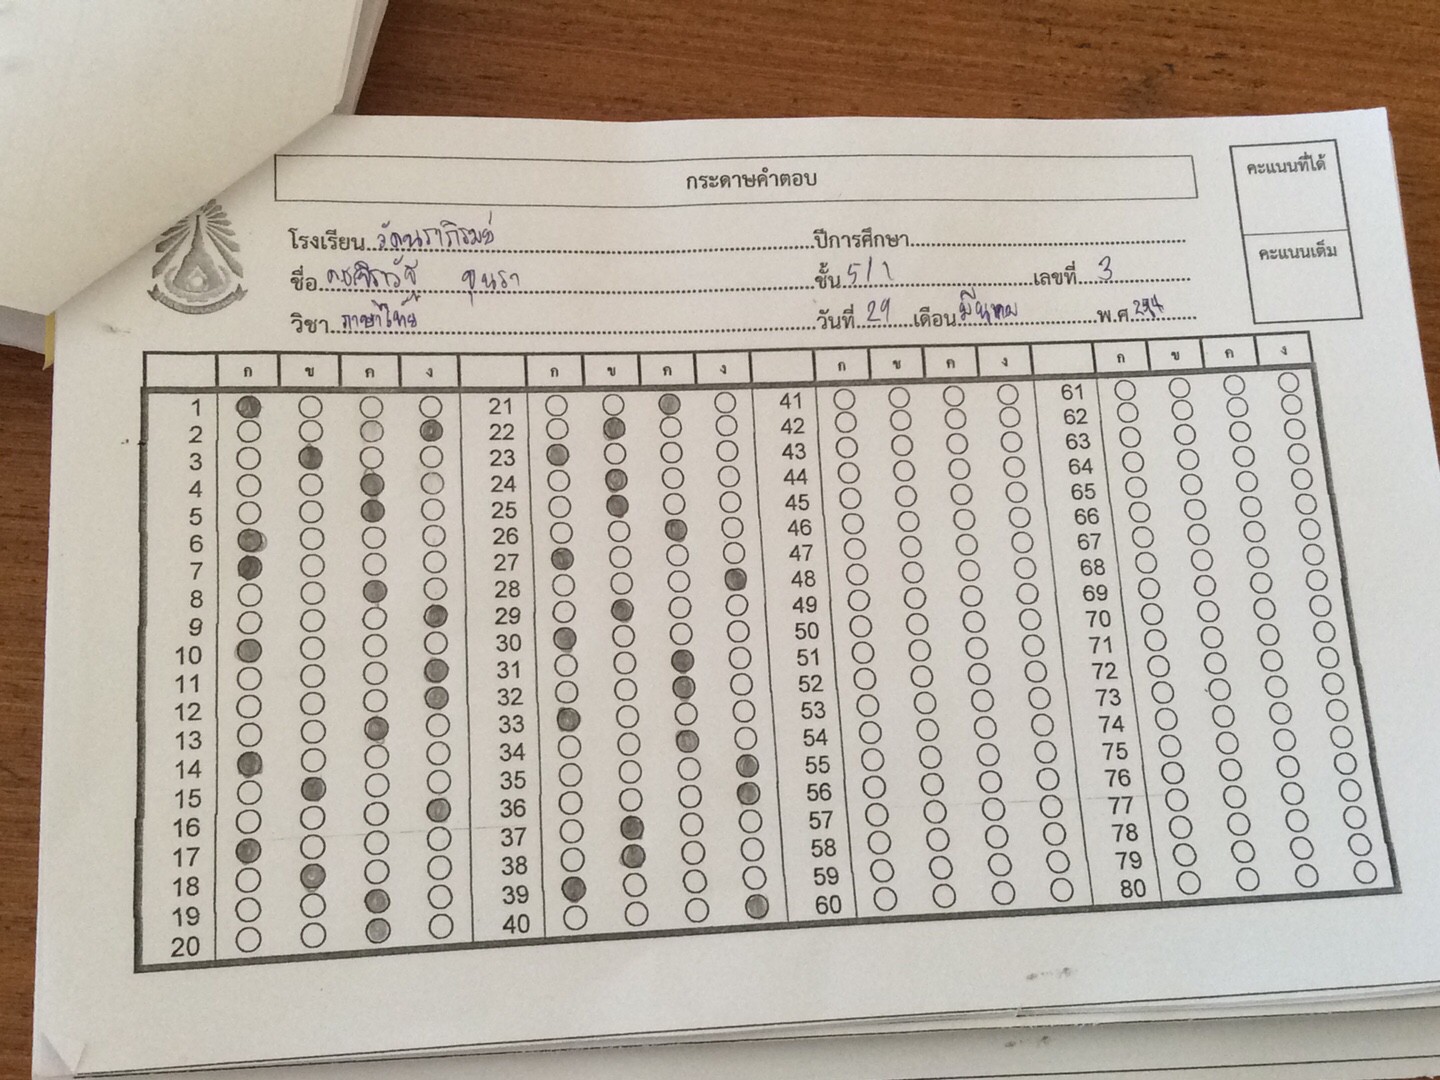 กระดาษคำตอบ
คะแนนที่ได้
โรงเรียน วัดนราภิรมย์ ปีการศึกษา
คะแนนเต็ม
ชื่อ ชั้น 5/1 เลขที่ 3
วิชา ภาษาไทย วันที่ 29 เดือน มีนาคม พ.ศ.
ก ข ค ง ก ข ค ง ก ข ค ง ก ข ค ง
1 21 41 61
2 22 42 62
3 23 43 63
4 24 44 64
5 25 45 65
6 26 46 66
7 27 47 67
8 28 48 68
9 29 49 69
10 30 50 70
11 31 51 71
12 32 52 72
13 33 53 73
14 34 54 74
15 35 55 75
16 36 56 76
17 37 57 77
18 38 58 78
19 39 59 79
20 40 60 80